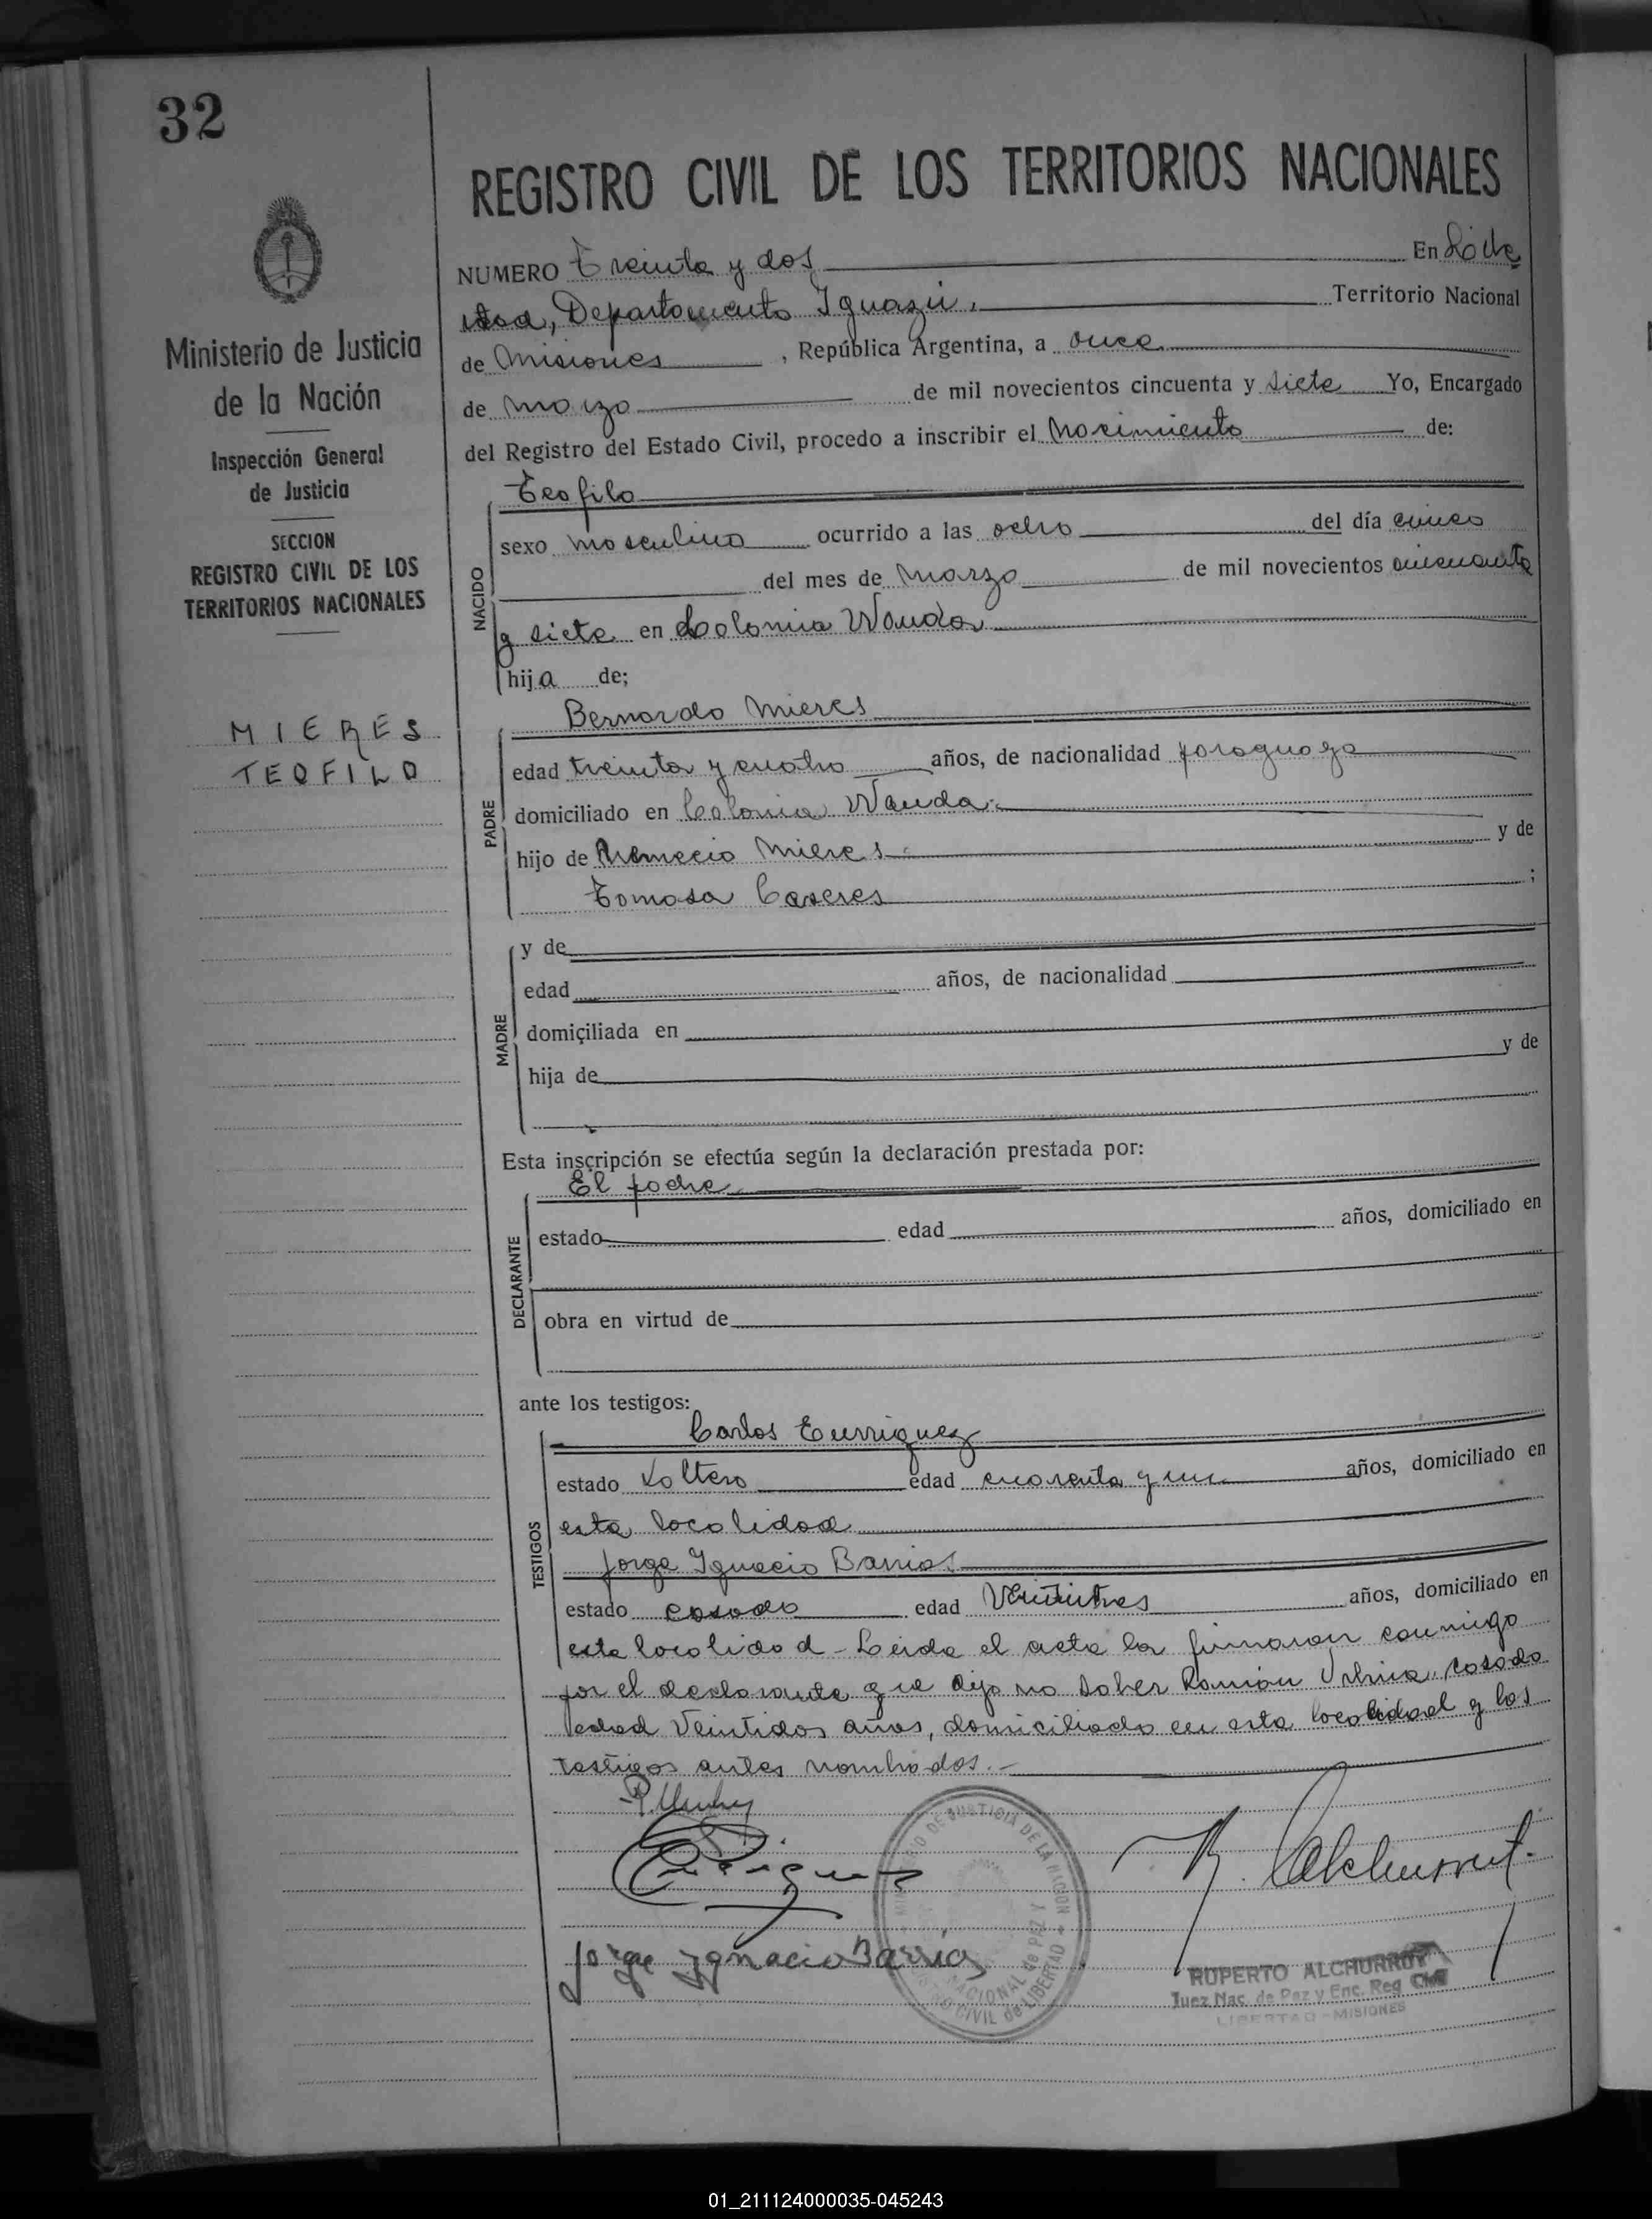 32
REGISTRO CIVIL DE LOS TERRITORIOS NACIONALES
NUMERO Treinta y dos En Libe
rtad, Departamento Iguazú, Territorio Nacional
de Misiones, República Argentina, a once
de marzo de mil novecientos cincuenta y siete Yo, Encargado
del Registro del Estado Civil, procedo a inscribir el nacimiento de:
Ministerio de Justicia
de la Nación
Inspección General
de Justicia
SECCION
REGISTRO CIVIL DE LOS
TERRITORIOS NACIONALES
MIERES
TEOFILO
NACIDO
Teofilo
sexo masculino ocurrido a las ocho del día cinco
del mes de marzo de mil novecientos cincuenta
y siete en Colonia Wanda
hija de;
PADRE
Bernardo Mieres
edad treinta y cuatro años, de nacionalidad paraguaya
domiciliado en Colonia Wanda.
hijo de Mieres y de
Tomasa Caseres ;
MADRE
y de
edad años, de nacionalidad
domiciliada en
hija de y de
Esta inscripción se efectúa según la declaración prestada por:
DECLARANTE
El padre
estado edad años, domiciliado en
obra en virtud de
ante los testigos:
TESTIGOS
Carlos Enrriquez
estado soltero edad cuarenta y un años, domiciliado en
esta localidad
Jorge Ignacio Barrios
estado casado edad Veintitres años, domiciliado en
esta localidad - Leida el acta la firmaron conmigo
por el declarante que dijo no saber Ramón Urbina, casado
edad Veintidos años, domiciliado en esta localidad y los
testigos antes nombrados.-
Jorge Ignacio Barrios
MINISTERIO DE JUSTICIA DE LA NACION
NACIONAL de PAZ Y
REGISTRO CIVIL de LIBERTAD
R. Alchurrut
RUPERTO ALCHURRUT
Juez Nac. de Paz y Enc. Reg. Civil
LIBERTAD - MISIONES
01_211124000035-045243